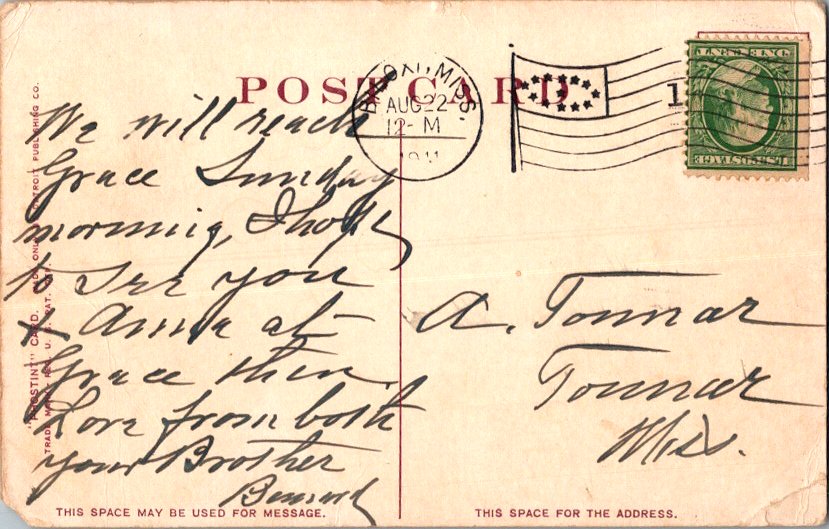 POST CARD
BILOXI, MISS.
AUG 22
12- M
1911
1
U.S. POSTAGE
ONE CENT
We will reach
Grace Sunday
morning, I hope
to see you
& Anna at
Grace then.
Love from both
your Brother
Bernard
A. Tonnar
Tonnar
Miss.
"PHOSTINT" CARD.
TRADE MARK REG. U. S. PAT. OFF.
MADE ONLY BY DETROIT PUBLISHING CO.
THIS SPACE MAY BE USED FOR MESSAGE.
THIS SPACE FOR THE ADDRESS.